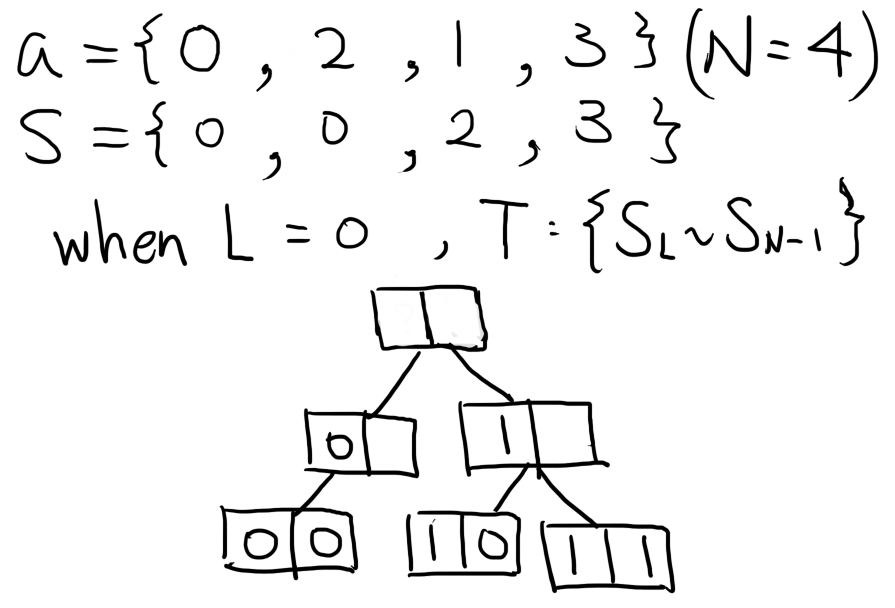 a = { 0 , 2 , 1 , 3 } (N = 4)
S = { 0 , 0 , 2 , 3 }
when L = 0 , T = { S_L ~ S_N-1 }
0 1
0 0 1 0 1 1